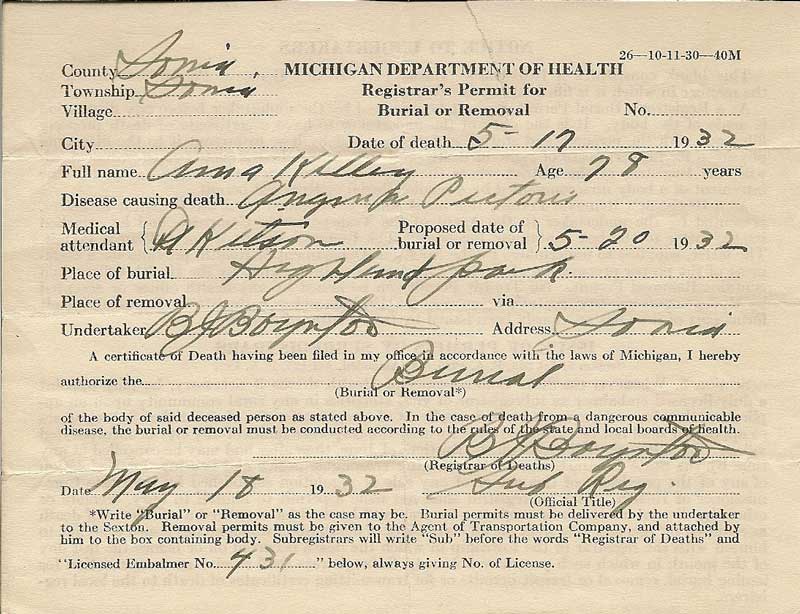 26—10-11-30—40M
County Ionia, MICHIGAN DEPARTMENT OF HEALTH
Township Ionia Registrar's Permit for
Village Burial or Removal No.
City Date of death 5-17 1932
Full name Anna Kelley Age 78 years
Disease causing death Angina Pectoris
Medical attendant { Kitson Proposed date of burial or removal } 5-20 1932
Place of burial Highland park
Place of removal via
Undertaker B J Boynton Address Ionia
A certificate of Death having been filed in my office in accordance with the laws of Michigan, I hereby
authorize the Burial
(Burial or Removal*)
of the body of said deceased person as stated above. In the case of death from a dangerous communicable
disease, the burial or removal must be conducted according to the rules of the state and local boards of health.
B J Boynton
(Registrar of Deaths)
Date May 18 1932 Sub Reg.
(Official Title)
*Write "Burial" or "Removal" as the case may be. Burial permits must be delivered by the undertaker
to the Sexton. Removal permits must be given to the Agent of Transportation Company, and attached by
him to the box containing body. Subregistrars will write "Sub" before the words "Registrar of Deaths" and
"Licensed Embalmer No. 431" below, always giving No. of License.